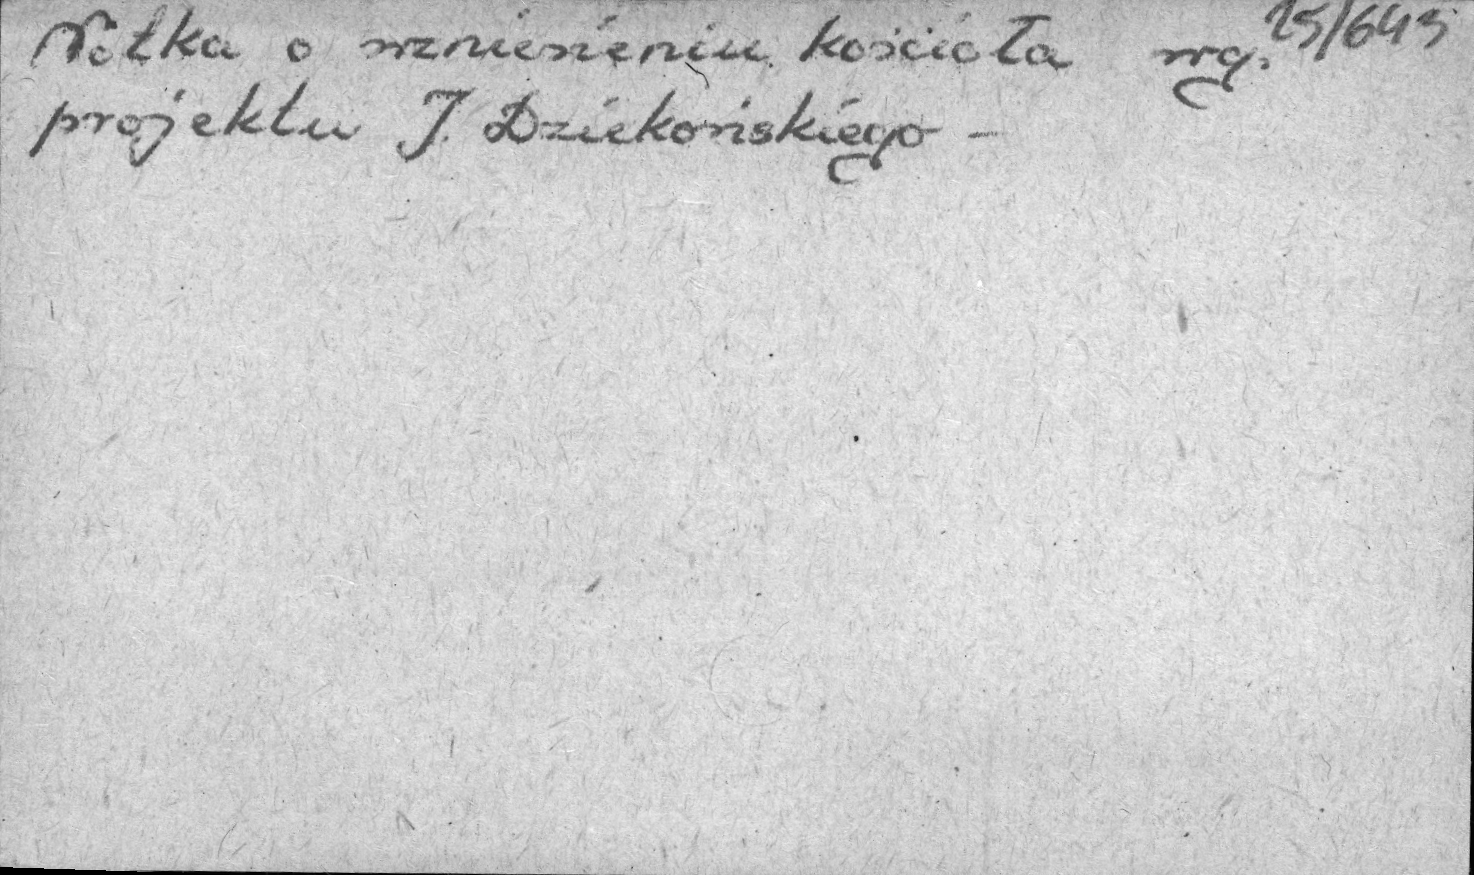 Notka o wzniesieniu kościoła wg. 25/645
projektu J. Dziekońskiego -